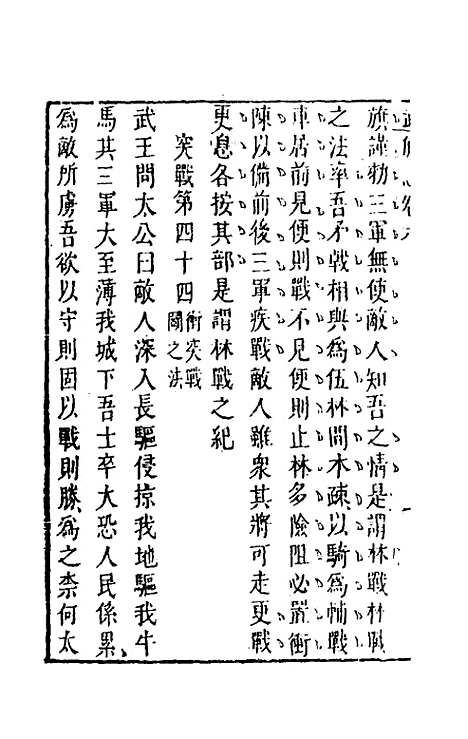 旗謹勅三軍無使敵人知吾之情是謂林戰林戰
之法率吾矛戟相與為伍林間木疎以騎為輔戰
車居前見便則戰不見便則止林多險阻必置衝
陳以備前後三軍疾戰敵人雖衆其將可走更戰
更息各按其部是謂林戰之紀
突戰第四十四衝突戰
鬬之法
武王問太公曰敵人深入長驅侵掠我地驅我牛
馬其三軍大至薄我城下吾士卒大恐人民係累
為敵所虜吾欲以守則固以戰則勝為之柰何太